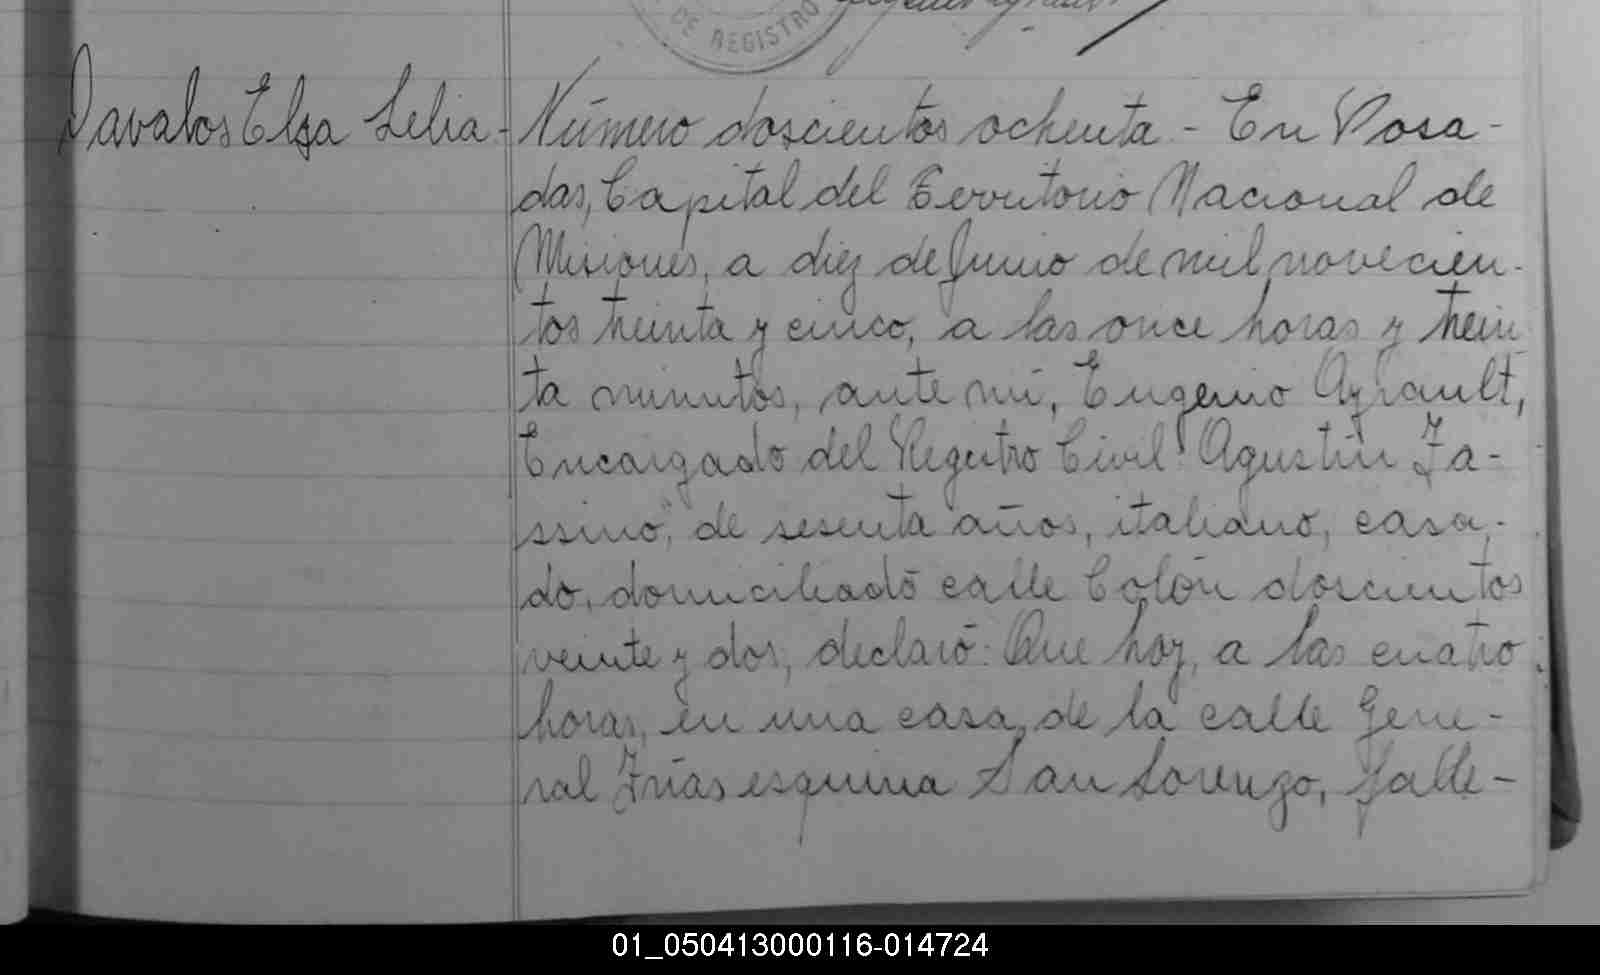 DE REGISTRO
Davalos Elsa Lelia - Número doscientos ochenta - En Posa-
das, Capital del Territorio Nacional de
Misiones, a diez de Junio de mil novecien-
tos treinta y cinco, a las once horas y trein
ta minutos, ante mi, Eugenio Ayrault,
Encargado del Registro Civil: Agustin Fa-
ssino", de sesenta años, italiano, casa-
do, domiciliado calle Colón doscientos
veinte y dos, declaró: Que hoy, a las cuatro
horas, en una casa de la calle Gene-
ral Frías esquina San Lorenzo, falle-
01_050413000116-014724